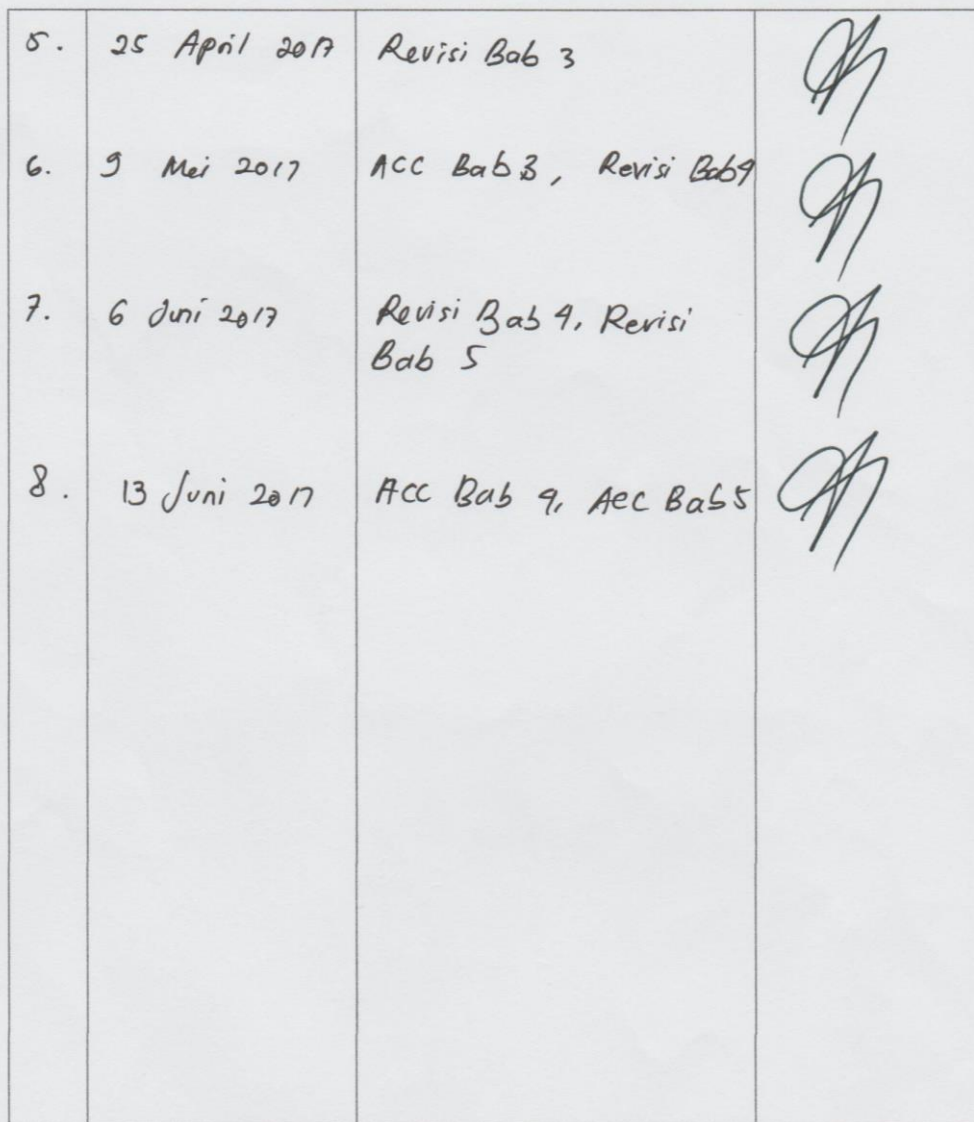 5. 25 April 2017 Revisi Bab 3
6. 9 Mei 2017 ACC Bab 3, Revisi Bab 4
7. 6 Juni 2017 Revisi Bab 4, Revisi
Bab 5
8. 13 Juni 2017 ACC Bab 4, ACC Bab 5